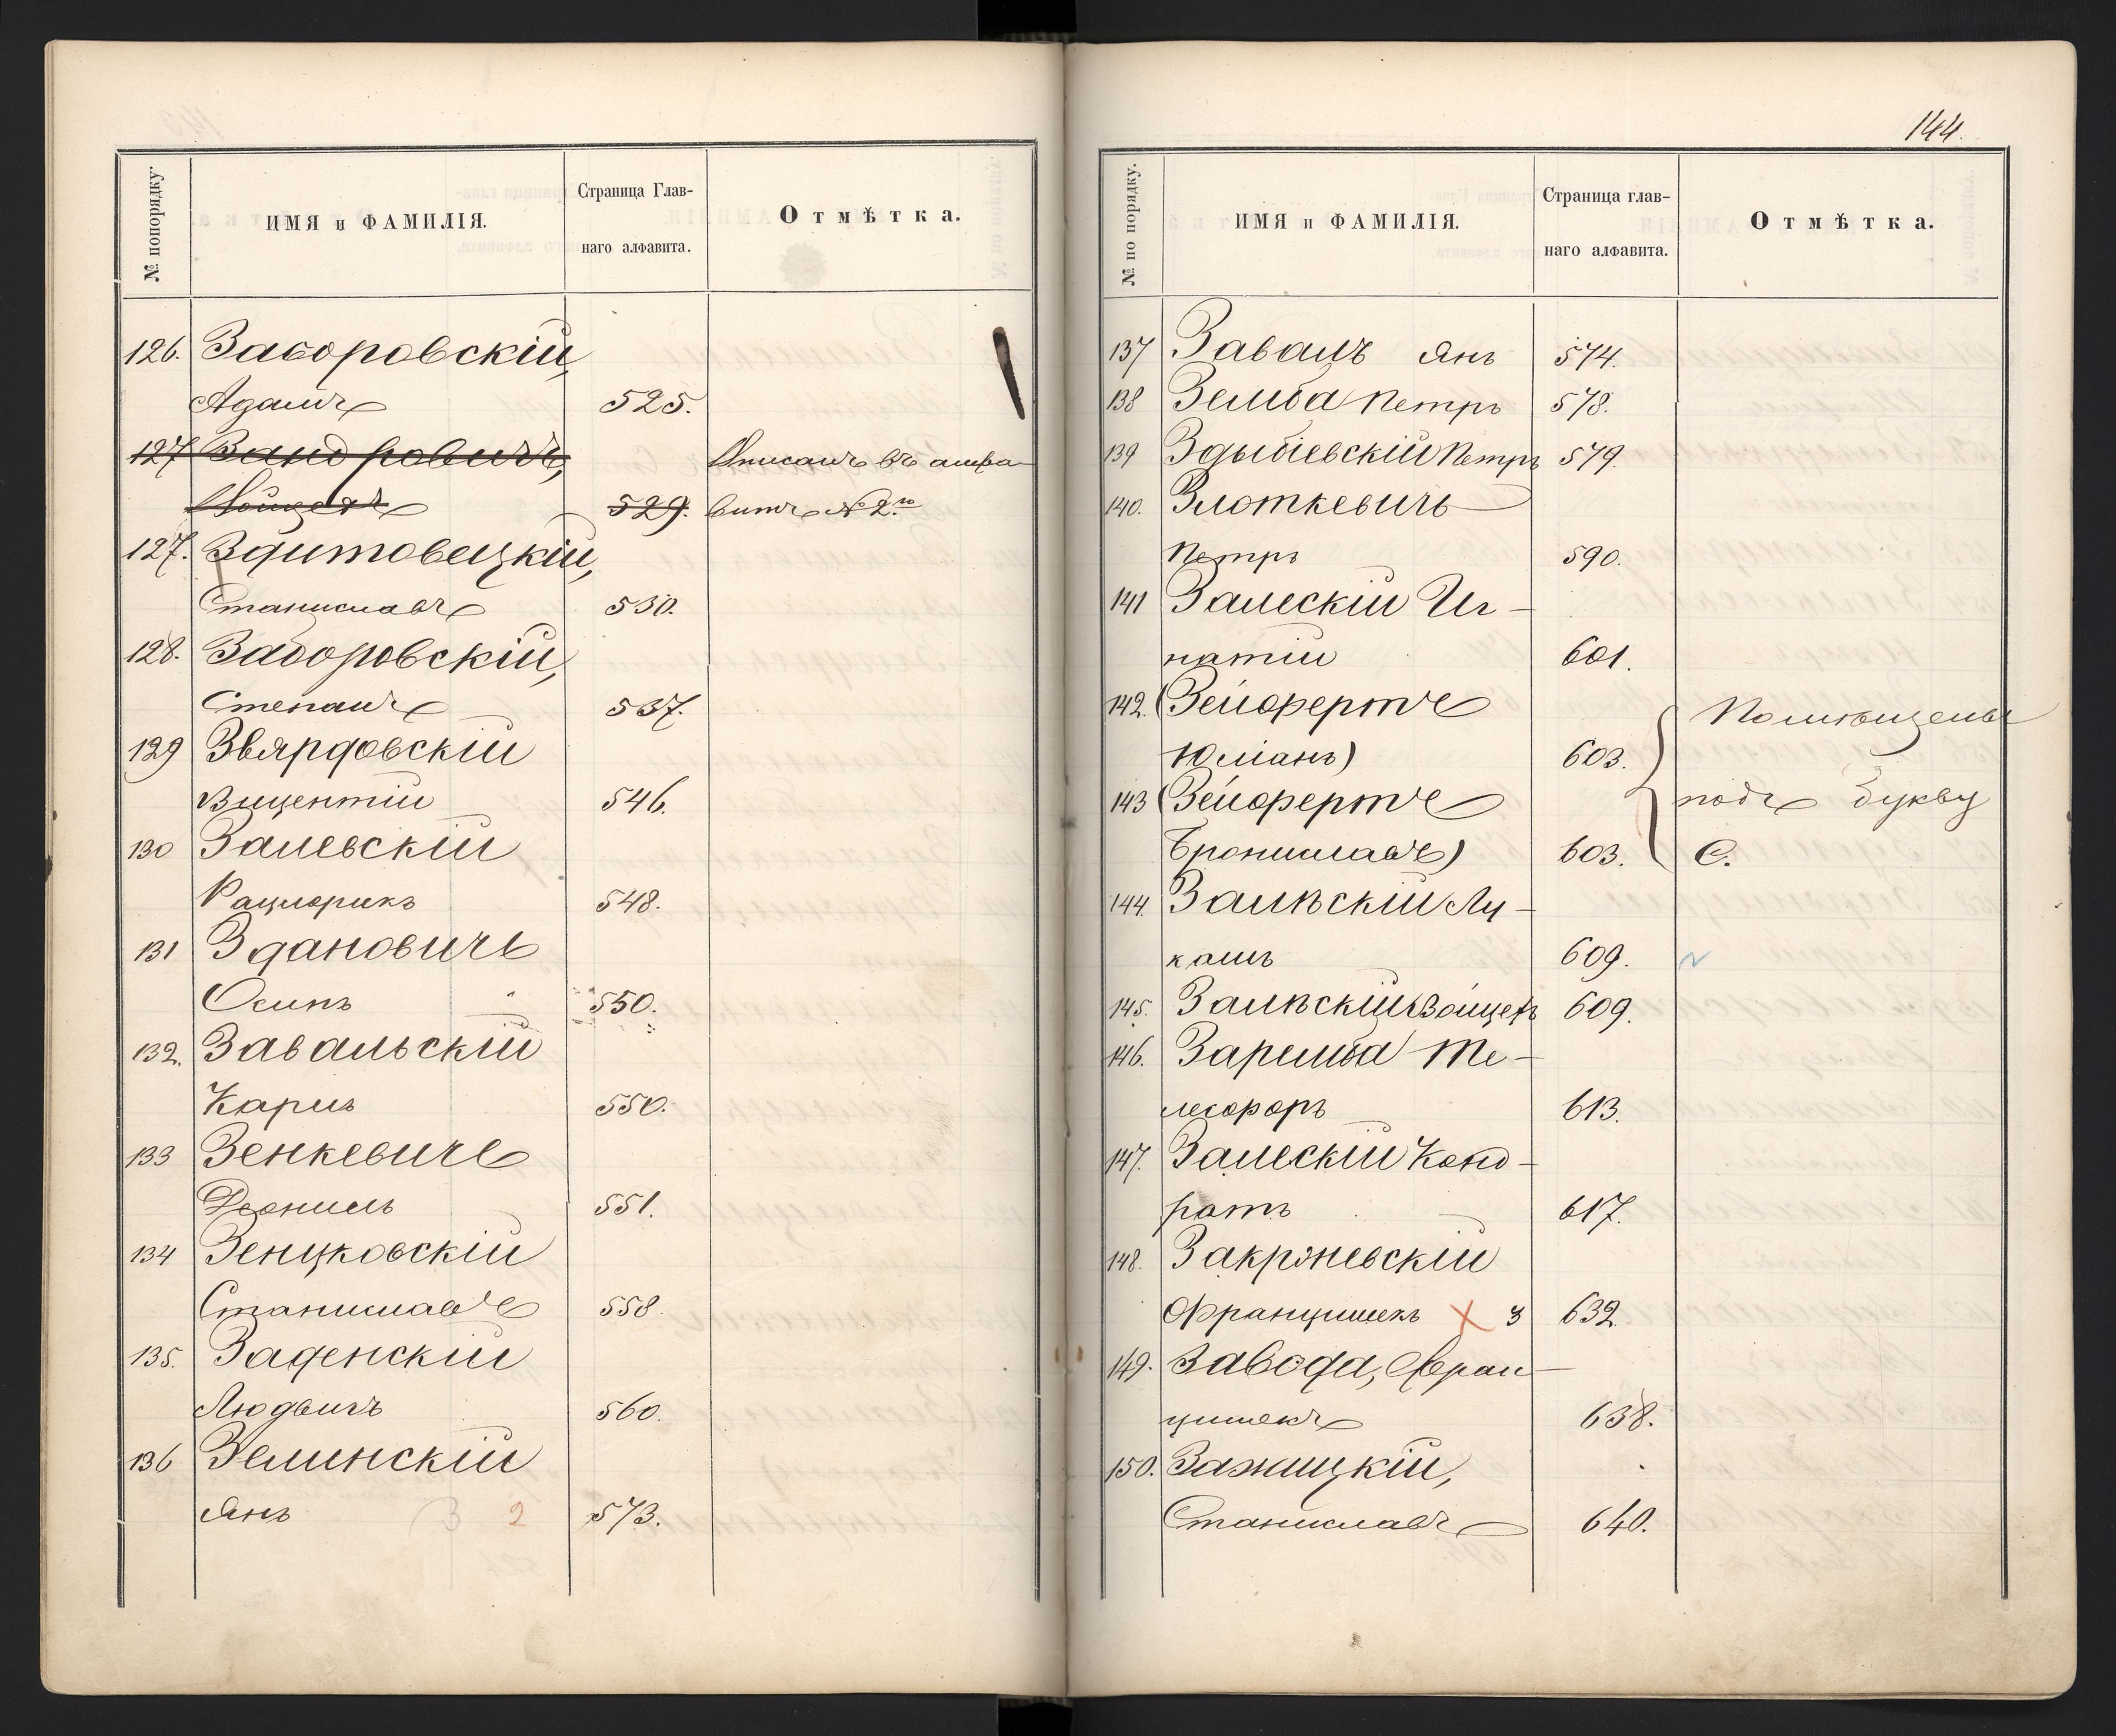 № попорядку.
ИМЯ и ФАМИЛІЯ.
Страница Глав-
наго алфавита.
Отмѣтка.
126. Заборовскій,
Адамъ 525.
127
529. витъ № 2го
127. Здитовецкій,
Станиславъ 530.
128. Заборовскій,
Степанъ 537.
129 Звярдовскій
Вицентій 546.
130 Залевскій
548.
131 Здановичъ
Осипъ 550.
132. Завальскій
Карлъ 550.
133 Зенкевичъ
551.
134 Зенцковскій
Станиславъ 558.
135. Заденскій
Людвигъ 560.
136 Зелинскій
Янъ З 2 573.
144.
№ по порядку.
ИМЯ и ФАМИЛІЯ.
Страница глав-
наго алфавита.
Отмѣтка.
137 Янъ 574.
138 Земба Петръ 578.
139 Здыбіевскій Петръ 579.
140. Злоткевичъ
Петръ 590.
141 Залескій Иг-
натій 601.
142. (Зейфертъ
Юліанъ) 603.
Помѣщены
143 (Зейфертъ
подъ букву
Брониславъ) 603. С.
144. Залѣскій Лу-
кашъ 609.
145. Залѣскій Войцехъ 609.
146. Заремба Те-
лесфоръ 613.
147. Залескій Конд-
ратъ 617.
148. Закржевскій
Францишекъ х 3 632.
149. Завода, Фран-
цишекъ 638.
150. Зажицкій,
Станиславъ 640.